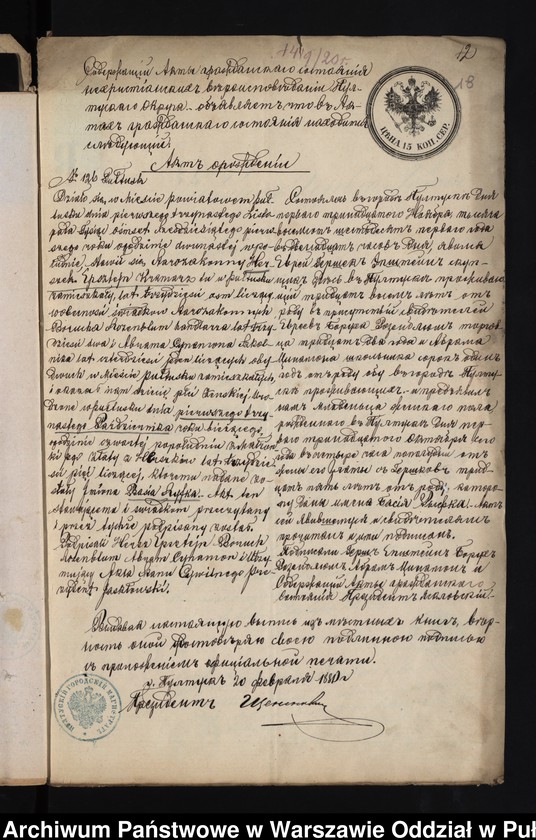 Содержащій Акты гражданскаго состоянія
нехристіанскихъ вѣроисповѣданій Пул-
тускаго Округа объявляетъ что въ Ак-
тахъ гражданскаго состоянія находится
слѣдующій:
Актъ о рожденіи
ЦѢНА 15 КОП. СЕР.
18
№ 126 Pułtusk
Działo się w Mieście powiatowem Puł-
tusku dnia pierwszego trzynastego Listo-
pada tysiąc ośmset sześćdziesiątego pierw-
szego roku o godzinie dwunastej w po-
łudnie. Stawił się Starozakonny Her-
szek Epsztejn Kramarz tu w Pułtusku
zamieszkały, lat trzydzieści ośm liczący
w obecności świadków Starozakonnych
Borucha Rozenblum handlarza lat trzy-
dzieści dwa i Abrama Cynamona Szkol-
nika lat czterdzieści jeden liczących oby-
dwóch w Mieście Pułtusku zamieszkałych,
i okazał nam dziecię płci żeńskiej uro-
dzone w Pułtusku dnia pierwszego trzy-
nastego Października roku bieżącego,
o godzinie czwartej po południu z Małżon-
ki jego Złaty z Herszków lat trzydzie-
ści pięć liczącej, któremu nadane zo-
stało imiona Basia Ryfka. Akt ten
Stawającemu i świadkom przeczytany
i przez tychże podpisany został.
Podpisali Herszk Epsztejn Boruch
Rozenblum Abram Cynamon i Utrzy-
mujący Akta Stanu Cywilnego Pre-
zydent
Состоялось въ городѣ Пултускѣ дня
перваго тринадцатаго Ноября тысяча
восемьсотъ шестьдесятъ перваго года
въ двѣнадцать часовъ дня. Явился
Еврей Гершекъ Епштейнъ
здѣсь въ Пултускѣ проживаю-
щій тридцать восемь лѣтъ отъ
роду въ присутствіи свидѣтелей
Евреевъ Боруха Розенблюмъ торгов-
ца тридцать два года и Абрама
Цинамона школьника сорокъ одинъ
годъ отъ роду оба въ городѣ Пулту-
скѣ проживающихъ и предъявилъ
намъ младенца женскаго пола
рожденнаго въ Пултускѣ дня пер-
ваго тринадцатаго Октября сего
года въ четыре часа пополудни отъ
жены его Златы съ Гершковъ трид-
цать пять лѣтъ отъ роду, которо-
му даны имена Бася Рыфка. Актъ
сей Явившемуся и свидѣтелямъ
прочитанъ и ими подписанъ.
Подписали Гершкъ Епштейнъ Борухъ
Розенблюмъ Абрамъ Цинамонъ и
Содержащій Акты гражданскаго
состоянія Президентъ
Выдавая настоящую выпись изъ мѣстныхъ книгъ, вѣр-
ность оной удостовѣряю моею подлинною подписью
съ приложеніемъ официальной печати.
г. Пултускъ 20 февраля
Президентъ
Archiwum Państwowe w Warszawie Oddział w Puł